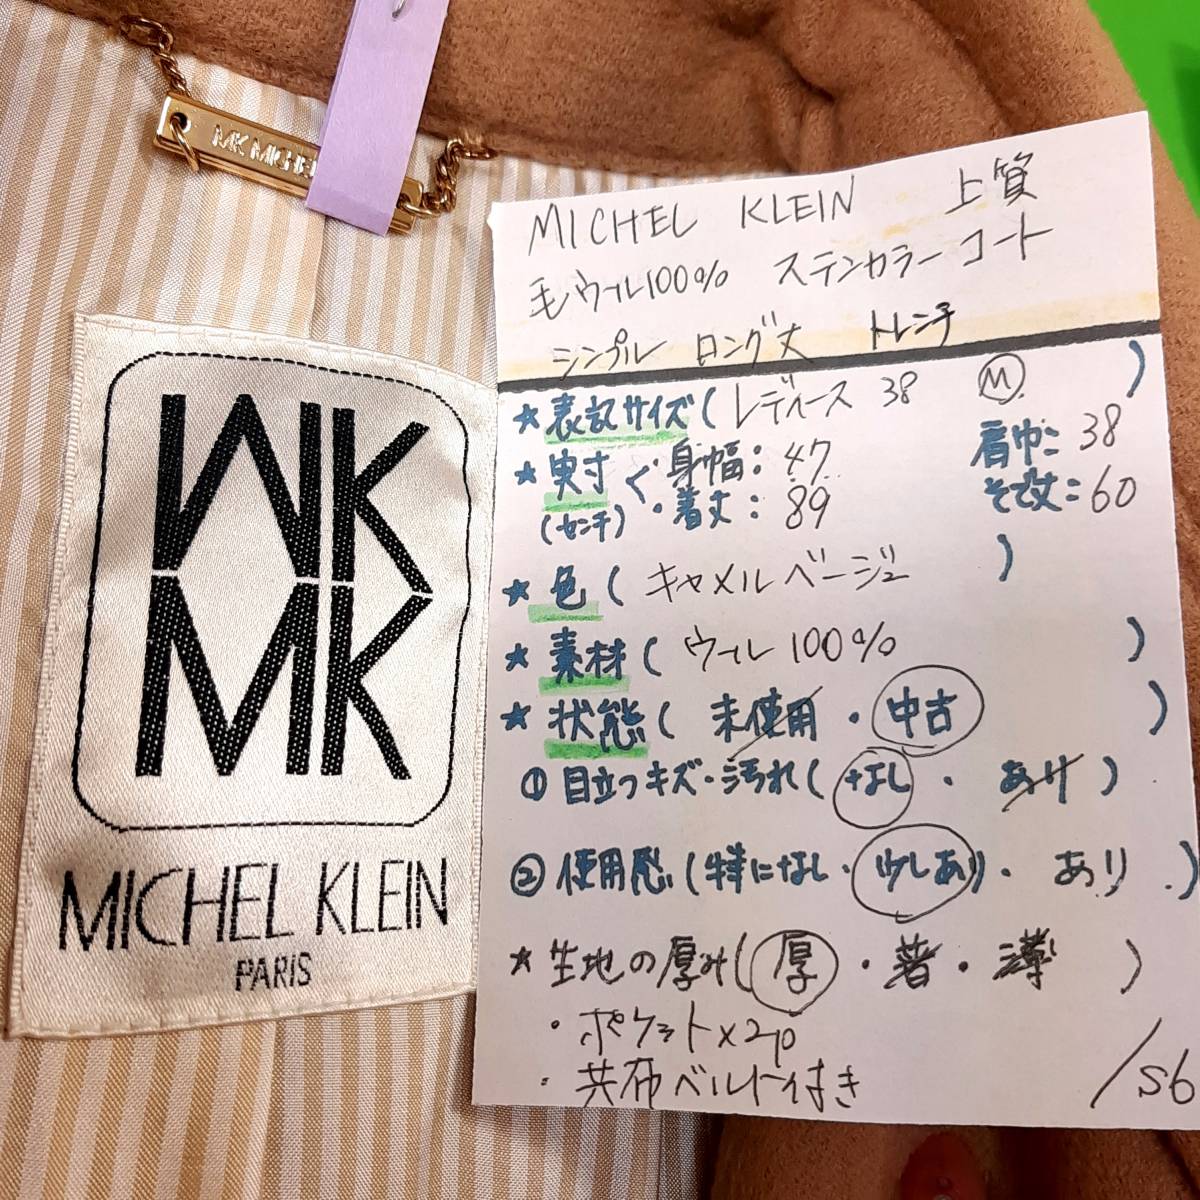 MK MICHEL
MK
MK
MICHEL KLEIN
PARIS
MICHEL KLEIN 上質
毛ウール100% ステンカラーコート
シンプル ロング丈 トレンチ
★表記サイズ(レディース 38 M)
★実寸く・身幅:47 肩巾:38
(センチ)・着丈:89 そで丈:60
★色(キャメルベージュ)
★素材(ウール100%)
★状態(未使用・中古)
①目立つキズ・汚れ(なし・あり)
②使用感(特になし・少しあり・あり.)
★生地の厚み(厚・・薄)
・ポケット×2p
・共布ベルト付き
/S6